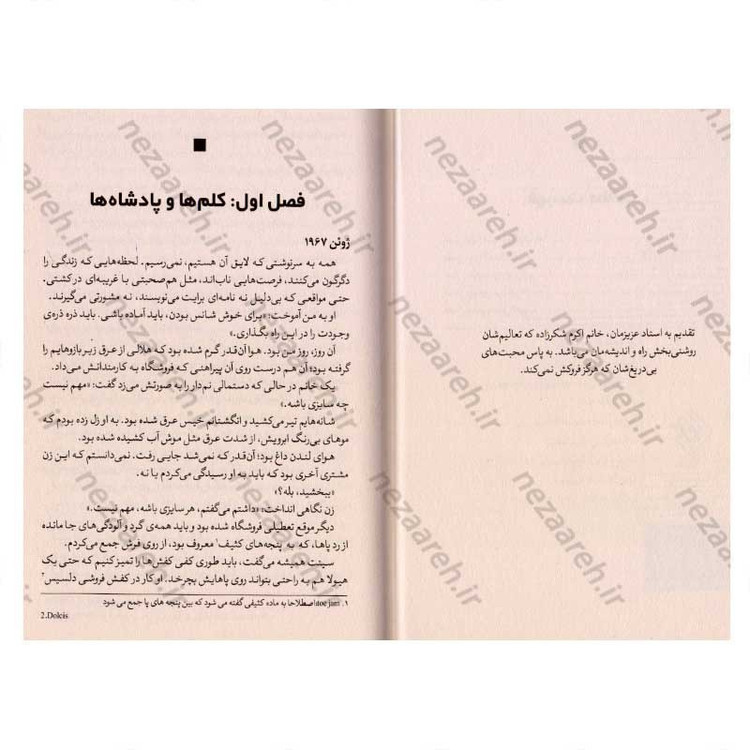 تقدیم به استاد عزیزمان، خانم اکرم شکرزاده که تعالیم‌شان
روشنی‌بخش راه و اندیشه‌مان می‌باشد. به پاس محبت‌های
بی‌دریغ‌شان که هرگز فروکش نمی‌کند.
فصل اول: کلم‌ها و پادشاه‌ها
ژوئن ۱۹۶۷
همه به سرنوشتی که لایق آن هستیم، نمی‌رسیم. لحظه‌هایی که زندگی را
دگرگون می‌کنند، فرصت‌هایی ناب‌اند، مثل هم‌صحبتی با غریبه‌ای در کشتی.
حتی مواقعی که بی‌دلیل نه نامه‌ای برایت می‌نویسند، نه مشورتی می‌گیرند.
او به من آموخت: «برای خوش شانس بودن، باید آماده باشی. باید ذره ذره‌ی
وجودت را در این راه بگذاری.»
آن روز، روز من بود. هوا آن‌قدر گرم شده بود که هلالی از عرق زیر بازوهایم را
گرفته بود؛ آن هم درست روی آن پیراهنی که فروشگاه به کارمندانش می‌داد.
یک خانم در حالی که دستمالی نم‌دار را به صورتش می‌زد گفت: «مهم نیست
چه سایزی باشه.»
شانه‌هایم تیر می‌کشید و انگشتانم خیس عرق شده بود. به او زل زده بودم که
موهای بی‌رنگ ابرویش، از شدت عرق مثل موش آب کشیده شده بود.
هوای لندن داغ بود؛ آن‌قدر که نمی‌شد جایی رفت. نمی‌دانستم که این زن
مشتری آخری بود که باید به او رسیدگی می‌کردم یا نه.
«ببخشید، بله؟»
زن نگاهی انداخت: «داشتم می‌گفتم، هر سایزی باشه، مهم نیست.»
دیگر موقع تعطیلی فروشگاه شده بود و باید همه‌ی گرد و آلودگی‌های جا مانده
از رد پاها، که به پنجه‌های کثیف۱ معروف بود، از روی فرش جمع می‌کردم.
سینت همیشه می‌گفت، باید طوری کفی کفش‌ها را تمیز کنیم که حتی یک
هیولا هم به راحتی بتواند روی پاهایش بچرخد. او کار در کفش فروشی دلسیس۲
۱. toe jam: اصطلاحا به ماده کثیفی گفته می شود که بین پنجه های پا جمع می شود
2.Dolcis
nezaareh.ir
nezaareh.ir
nezaareh.ir
nezaareh.ir
nezaareh.ir
nezaareh.ir
nezaareh.ir
nezaareh.ir
nezaareh.ir
nezaareh.ir
nezaareh.ir
nezaareh.ir